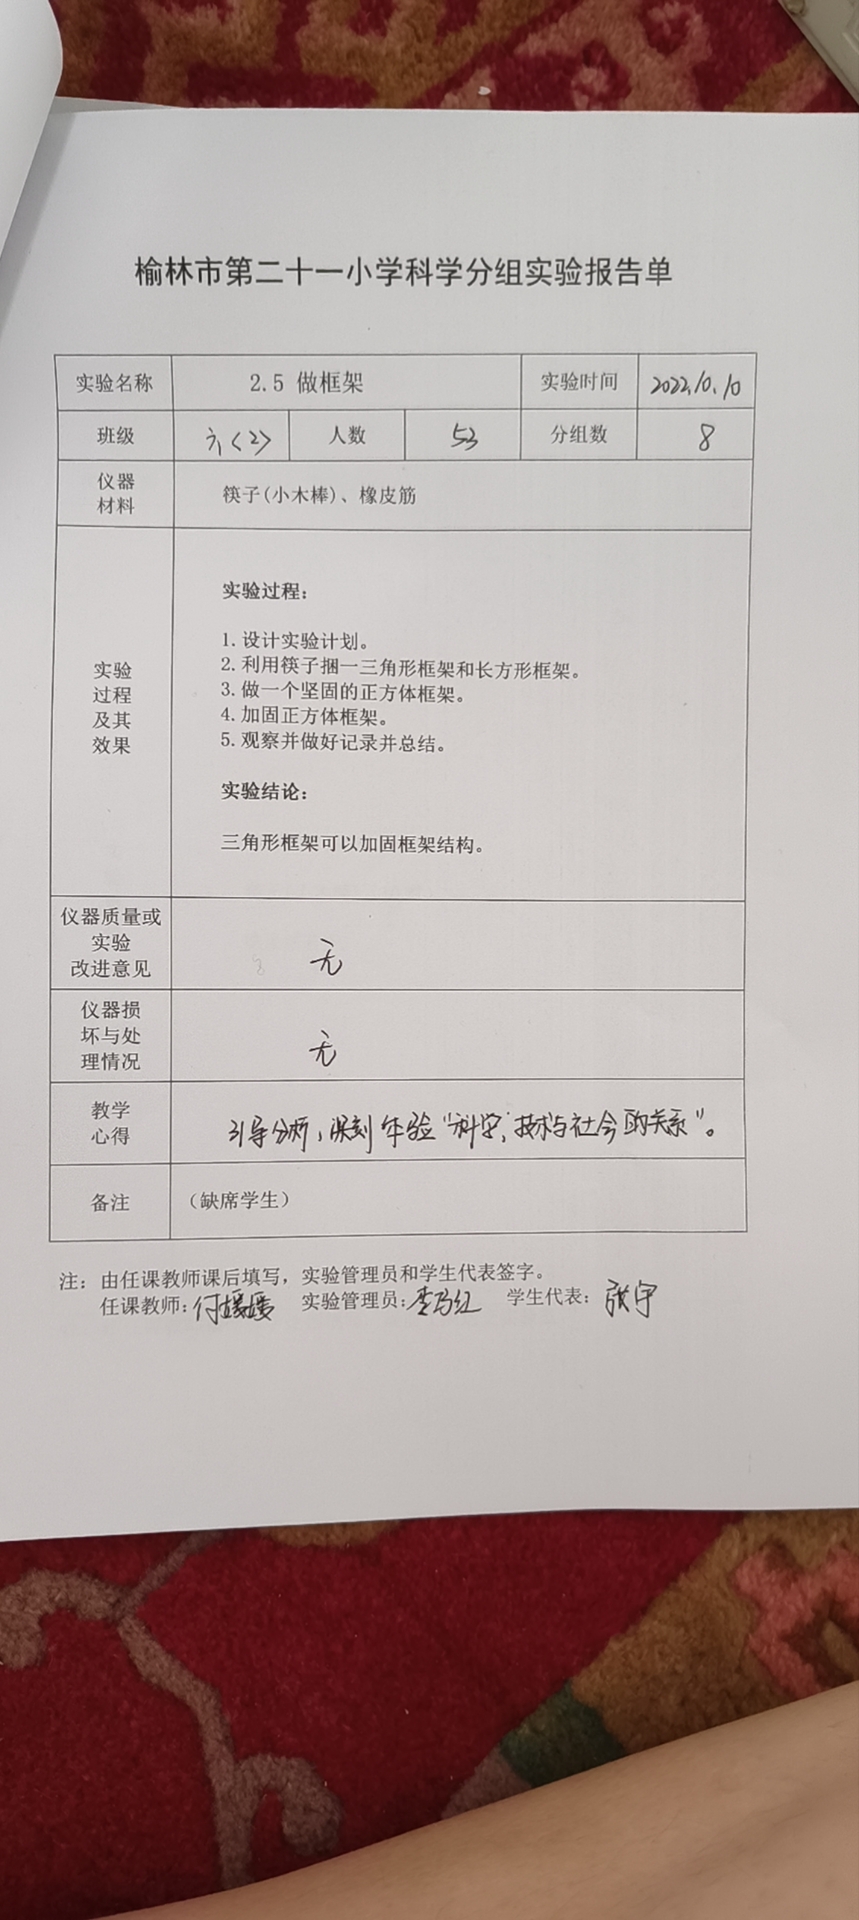 榆林市第二十一小学科学分组实验报告单
实验名称 2.5 做框架 实验时间 2022.10.10
班级 六<2> 人数 53 分组数 8
仪器
材料
筷子(小木棒)、橡皮筋
实验
过程
及其
效果
实验过程:
1.设计实验计划。
2.利用筷子捆一三角形框架和长方形框架。
3.做一个坚固的正方体框架。
4.加固正方体框架。
5.观察并做好记录并总结。
实验结论:
三角形框架可以加固框架结构。
仪器质量或
实验
改进意见
无
仪器损
坏与处
理情况
无
教学
心得
引导分析,深刻体验"科学,技术与社会的关系"。
备注 (缺席学生)
注: 由任课教师课后填写,实验管理员和学生代表签字。
任课教师:付媛媛 实验管理员: 学生代表: 张宇